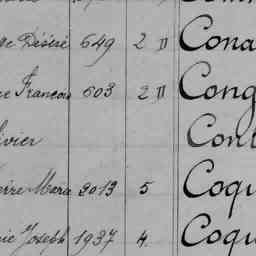 Désiré 649 2 D Cona
François 603 2 D Cong
Cont
Marie 3013 5 Coqu
Joseph 1937 4 Coqu